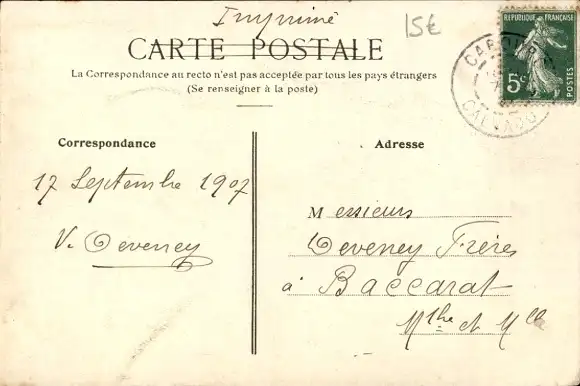 Imprimé
15€
CARTE POSTALE
La Correspondance au recto n'est pas acceptée par tous les pays étrangers
(Se renseigner à la poste)
RÉPUBLIQUE FRANÇAISE
5c
POSTES
CABOURG
CALVADOS
Correspondance
17 Septembre 1907
V. Deveney
Adresse
Messieurs
Deveney Frères
à Baccarat
Mthe et Mlle